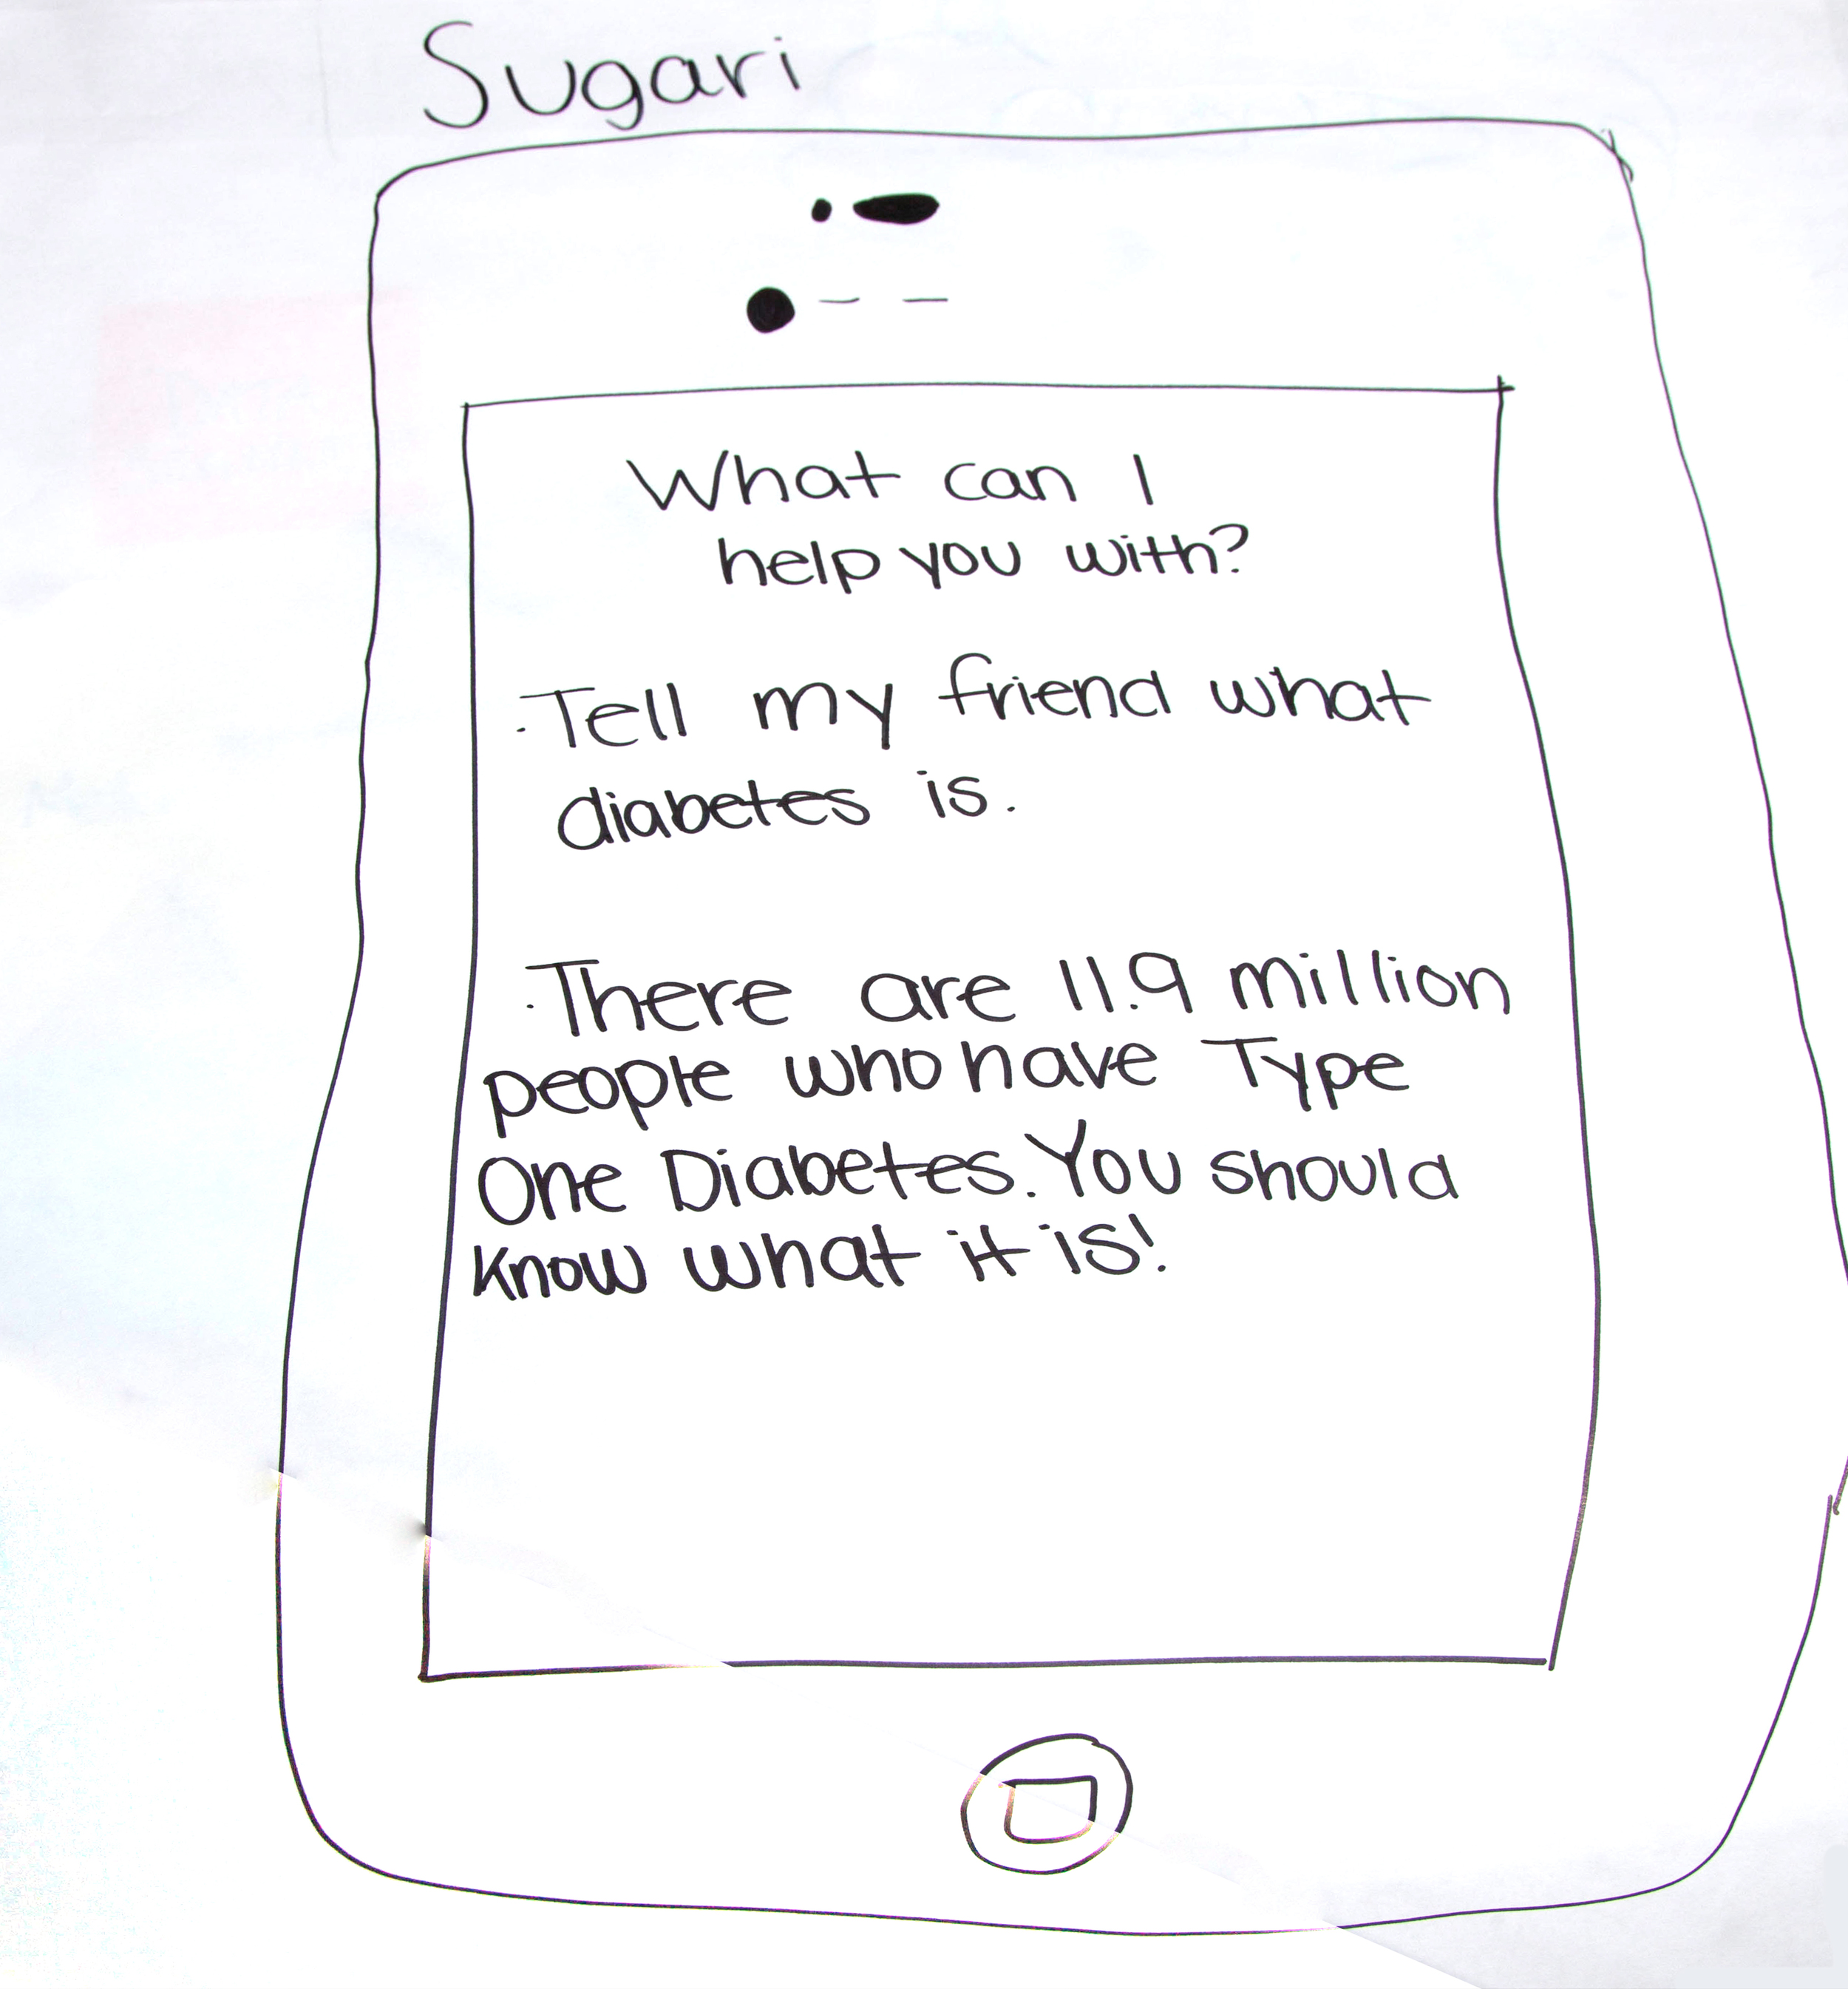 Sugari
What can I
help you with?
·Tell my friend what
diabetes is.
·There are 11.9 million
people who have Type
One Diabetes. You should
know what it is!